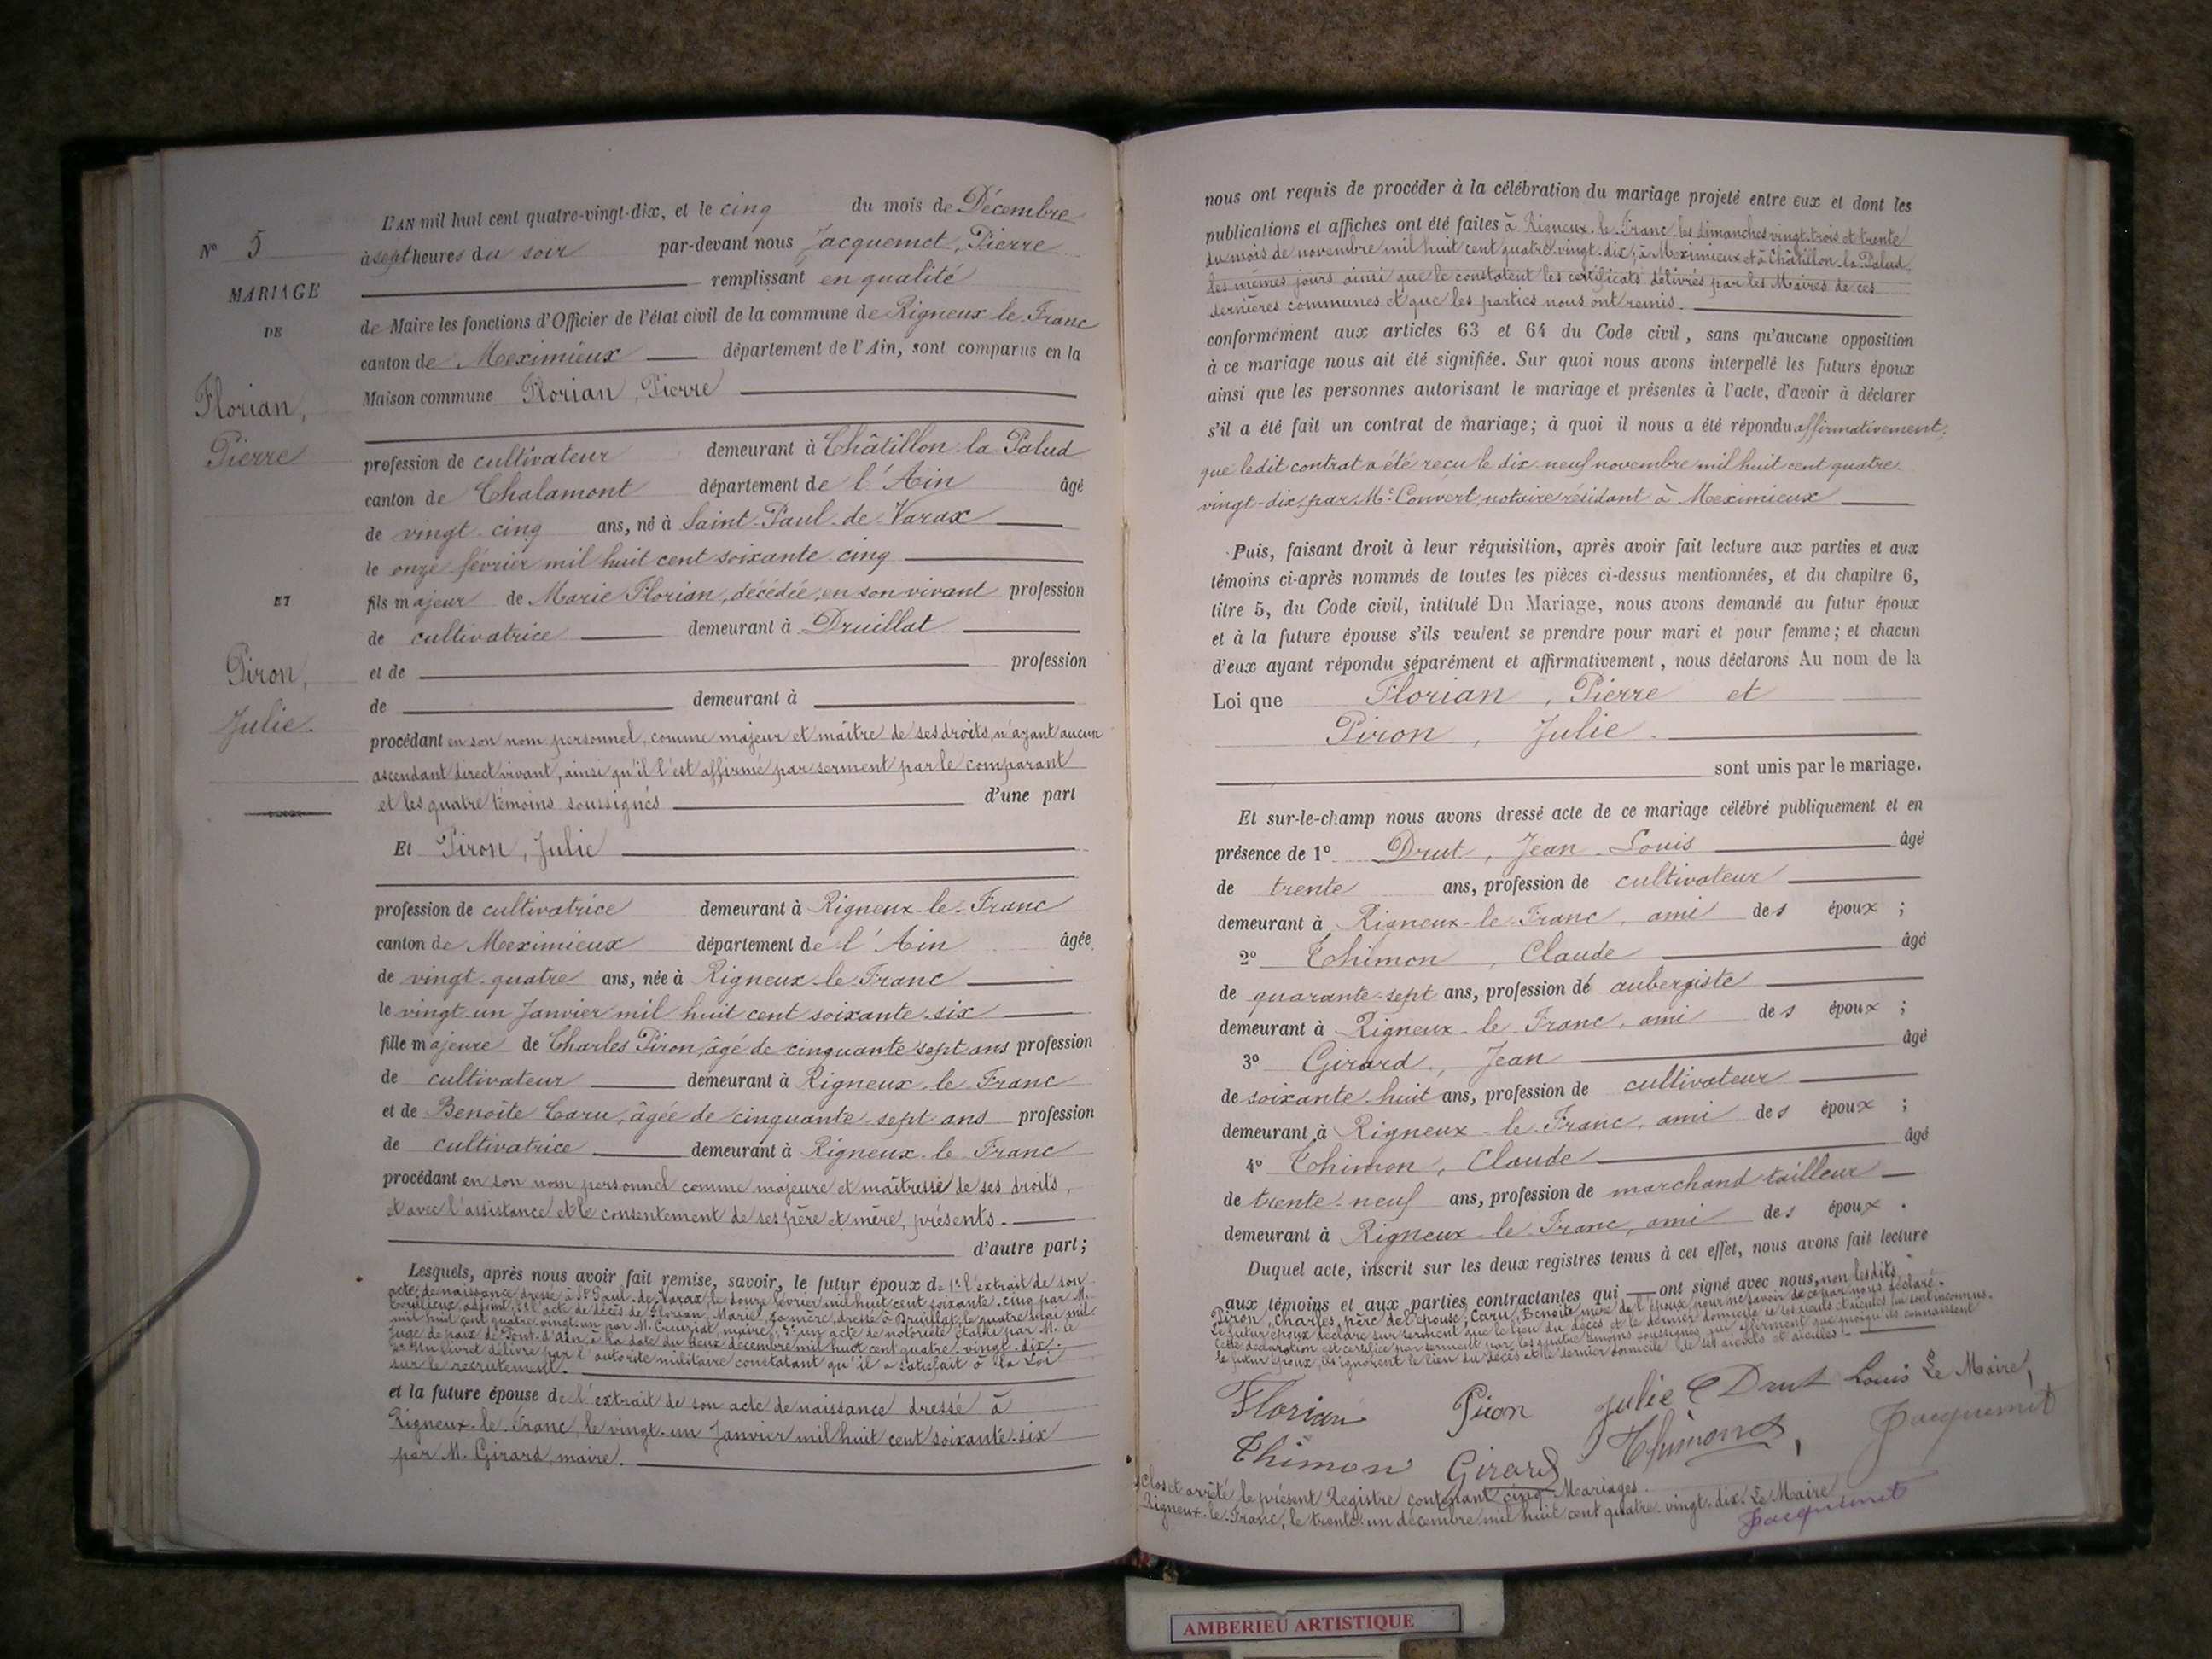 L'AN mil huit cent quatre-vingt-dix, et le cinq du mois de Décembre
à sept heures du soir par-devant nous Jacquemet, Pierre
remplissant en qualité
de Maire les fonctions d'Officier de l'état civil de la commune de Rigneux-le-Franc
canton de Meximieux département de l'Ain, sont comparus en la
Maison commune Florian, Pierre
profession de cultivateur demeurant à Châtillon-la-Palud
canton de Chalamont département de l'Ain âgé
de vingt-cinq ans, né à Saint-Paul-de-Varax
le onze février mil huit cent soixante-cinq
fils majeur de Marie Florian, décédée, en son vivant profession
de cultivatrice demeurant à Druillat
et de profession
de demeurant à
procédant en son nom personnel, comme majeur et maître de ses droits, n'ayant aucun
ascendant direct vivant, ainsi qu'il l'est affirmé par serment par le comparant
et les quatre témoins soussignés d'une part
Et Piron, Julie
profession de cultivatrice demeurant à Rigneux-le-Franc
canton de Meximieux département de l'Ain âgée
de vingt-quatre ans, née à Rigneux-le-Franc
le vingt-un Janvier mil huit cent soixante-six
fille majeure de Charles Piron, âgé de cinquante-sept ans profession
de cultivateur demeurant à Rigneux-le-Franc
et de Benoîte Caru, âgée de cinquante-sept ans profession
de cultivatrice demeurant à Rigneux-le-Franc
procédant en son nom personnel comme majeure et maîtresse de ses droits,
et avec l'assistance et le consentement de ses père et mère, présents.
d'autre part;
Lesquels, après nous avoir fait remise, savoir, le futur époux de 1° l'extrait de son
acte de naissance dressé à St Paul-de-Varax, le douze février mil huit cent soixante-cinq par M.
adjoint; 2° l'acte de décès de Florian, Marie, sa mère, dressé à Druillat, le quatre mai mil
mil huit cent quatre-vingt-un par M. maire; 3° un acte de notoriété établi par M. le
Juge de paix de Pont-d'Ain, à la date du deux décembre mil huit cent quatre-vingt-dix;
4° Un livret délivré par l'autorité militaire constatant qu'il a satisfait à la Loi
sur le recrutement.
et la future épouse de l'extrait de son acte de naissance dressé à
Rigneux-le-Franc, le vingt-un Janvier mil huit cent soixante-six
par M. Girard, maire.
N° 5
MARIAGE
DE
Florian,
Pierre
ET
Piron,
Julie.
nous ont requis de procéder à la célébration du mariage projeté entre eux et dont les
publications et affiches ont été faites à Rigneux-le-Franc les dimanches vingt-trois et trente
du mois de novembre mil huit cent quatre-vingt-dix; à Meximieux et à Châtillon-la-Palud,
les mêmes jours ainsi que le constatent les certificats délivrés par les Maires de ces
dernières communes et que les parties nous ont remis.
conformément aux articles 63 et 64 du Code civil, sans qu'aucune opposition
à ce mariage nous ait été signifiée. Sur quoi nous avons interpellé les futurs époux
ainsi que les personnes autorisant le mariage et présentes à l'acte, d'avoir à déclarer
s'il a été fait un contrat de mariage; à quoi il nous a été répondu affirmativement;
que ledit contrat a été reçu le dix-neuf novembre mil huit cent quatre-
vingt-dix, par Me Convert, notaire résidant à Meximieux
Puis, faisant droit à leur réquisition, après avoir fait lecture aux parties et aux
témoins ci-après nommés de toutes les pièces ci-dessus mentionnées, et du chapitre 6,
titre 5, du Code civil, intitulé Du Mariage, nous avons demandé au futur époux
et à la future épouse s'ils veulent se prendre pour mari et pour femme; et chacun
d'eux ayant répondu séparément et affirmativement, nous déclarons Au nom de la
Loi que Florian, Pierre et
Piron, Julie.
sont unis par le mariage.
Et sur-le-champ nous avons dressé acte de ce mariage célébré publiquement et en
présence de 1° Drut, Jean-Louis âgé
de trente ans, profession de cultivateur
demeurant à Rigneux-le-Franc, ami des époux;
2° Thimon, Claude âgé
de quarante-sept ans, profession de aubergiste
demeurant à Rigneux-le-Franc, ami des époux;
3° Girard, Jean âgé
de soixante-huit ans, profession de cultivateur
demeurant à Rigneux-le-Franc, ami des époux;
4° Thimon, Claude âgé
de trente-neuf ans, profession de marchand-tailleur
demeurant à Rigneux-le-Franc, ami des époux.
Duquel acte, inscrit sur les deux registres tenus à cet effet, nous avons fait lecture
aux témoins et aux parties contractantes qui ont signé avec nous, non lesdits
Piron, Charles, père de l'épouse; Caru, Benoîte mère de l'épouse pour ne savoir de ce par nous déclaré.
Le futur époux déclare sur serment que le lieu du décès et le dernier domicile de ses aïeuls et aïeules lui sont inconnus.
Cette déclaration est certifiée par serment par les quatre témoins soussignés qui affirment que quoiqu'ils connaissent
le futur époux, ils ignorent le lieu du décès et le dernier domicile de ses aïeuls et aïeules.
Florian Piron Julie Drut Louis Le Maire,
Thimon Girard Thimon Jacquemet
Clos et arrêté le présent Registre contenant cinq Mariages.
Rigneux-le-Franc, le trente-un décembre mil huit cent quatre-vingt-dix. Le Maire
Jacquemet
AMBERIEU ARTISTIQUE